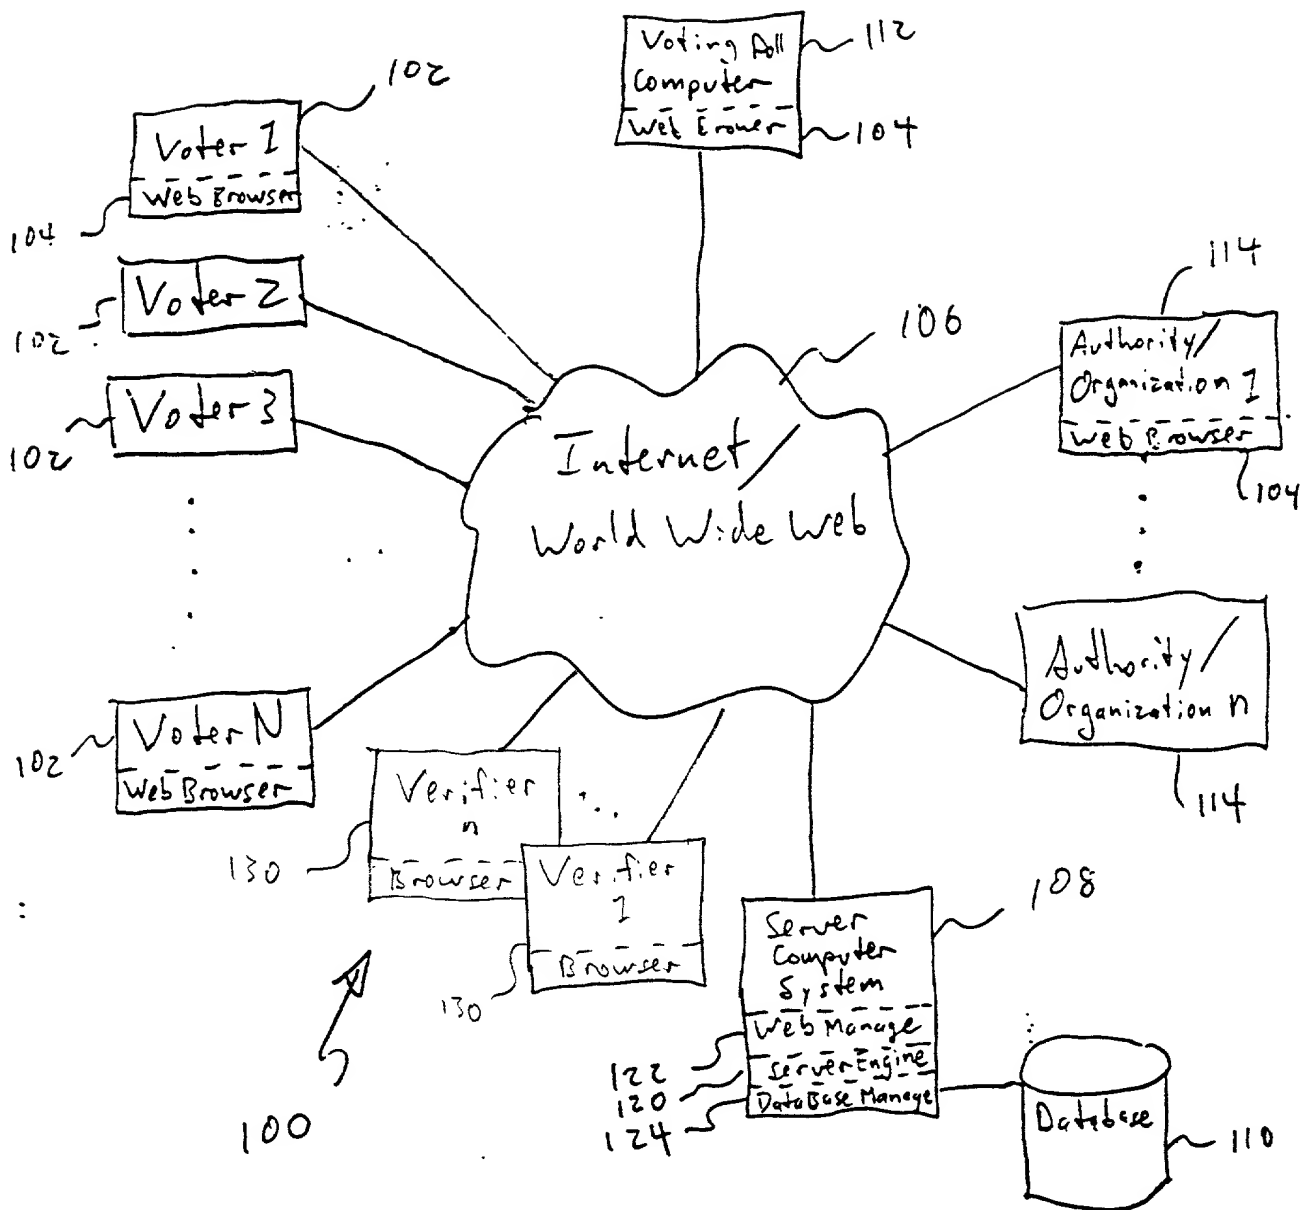 Voting Poll
Computer
Web Browser
112
104
102
Voter 1
Web Browser
104
Voter 2
102
Voter 3
102
Voter N
Web Browser
102
106
Internet /
World Wide Web
114
Authority/
Organization 1
Web Browser
104
Authority/
Organization n
114
Verifier
n
Browser
130
Verifier
1
Browser
130
108
Server
Computer
System
Web Manage
Server Engine
DataBase Manage
122
120
124
Database
110
100